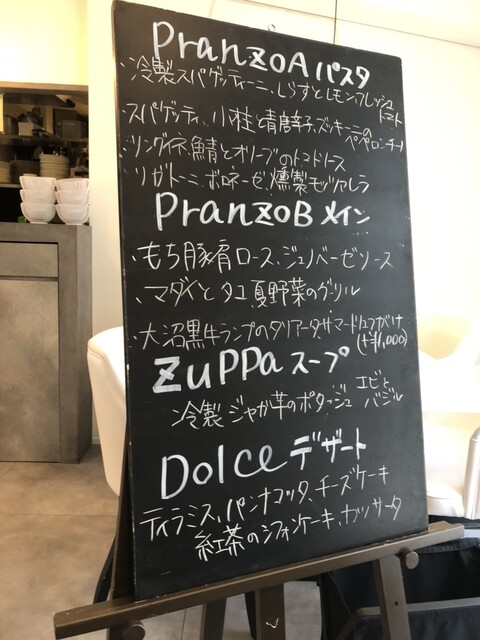 PranzoA パスタ
・冷製スパゲッティーニ、しらすとレモンフレッシュトマト
・スパゲッティ、小柱と青唐辛子、ズッキーニのペペロンチーノ
・リングイネ、鯖とオリーブのトマトソース
・リガトーニ、ボロネーゼ、燻製モッツァレラ
PranzoB メイン
・もち豚肩ロース、ジェノベーゼソース
・マダイとタコ夏野菜のグリル
・大沼黒牛ランプのタリアータ、サマートリュフがけ
(+¥1,000)
Zuppa スープ
冷製 ジャガ芋のポタージュ エビとバジル
Dolce デザート
ティラミス、パンナコッタ、チーズケーキ
紅茶のシフォンケーキ、カッサータ